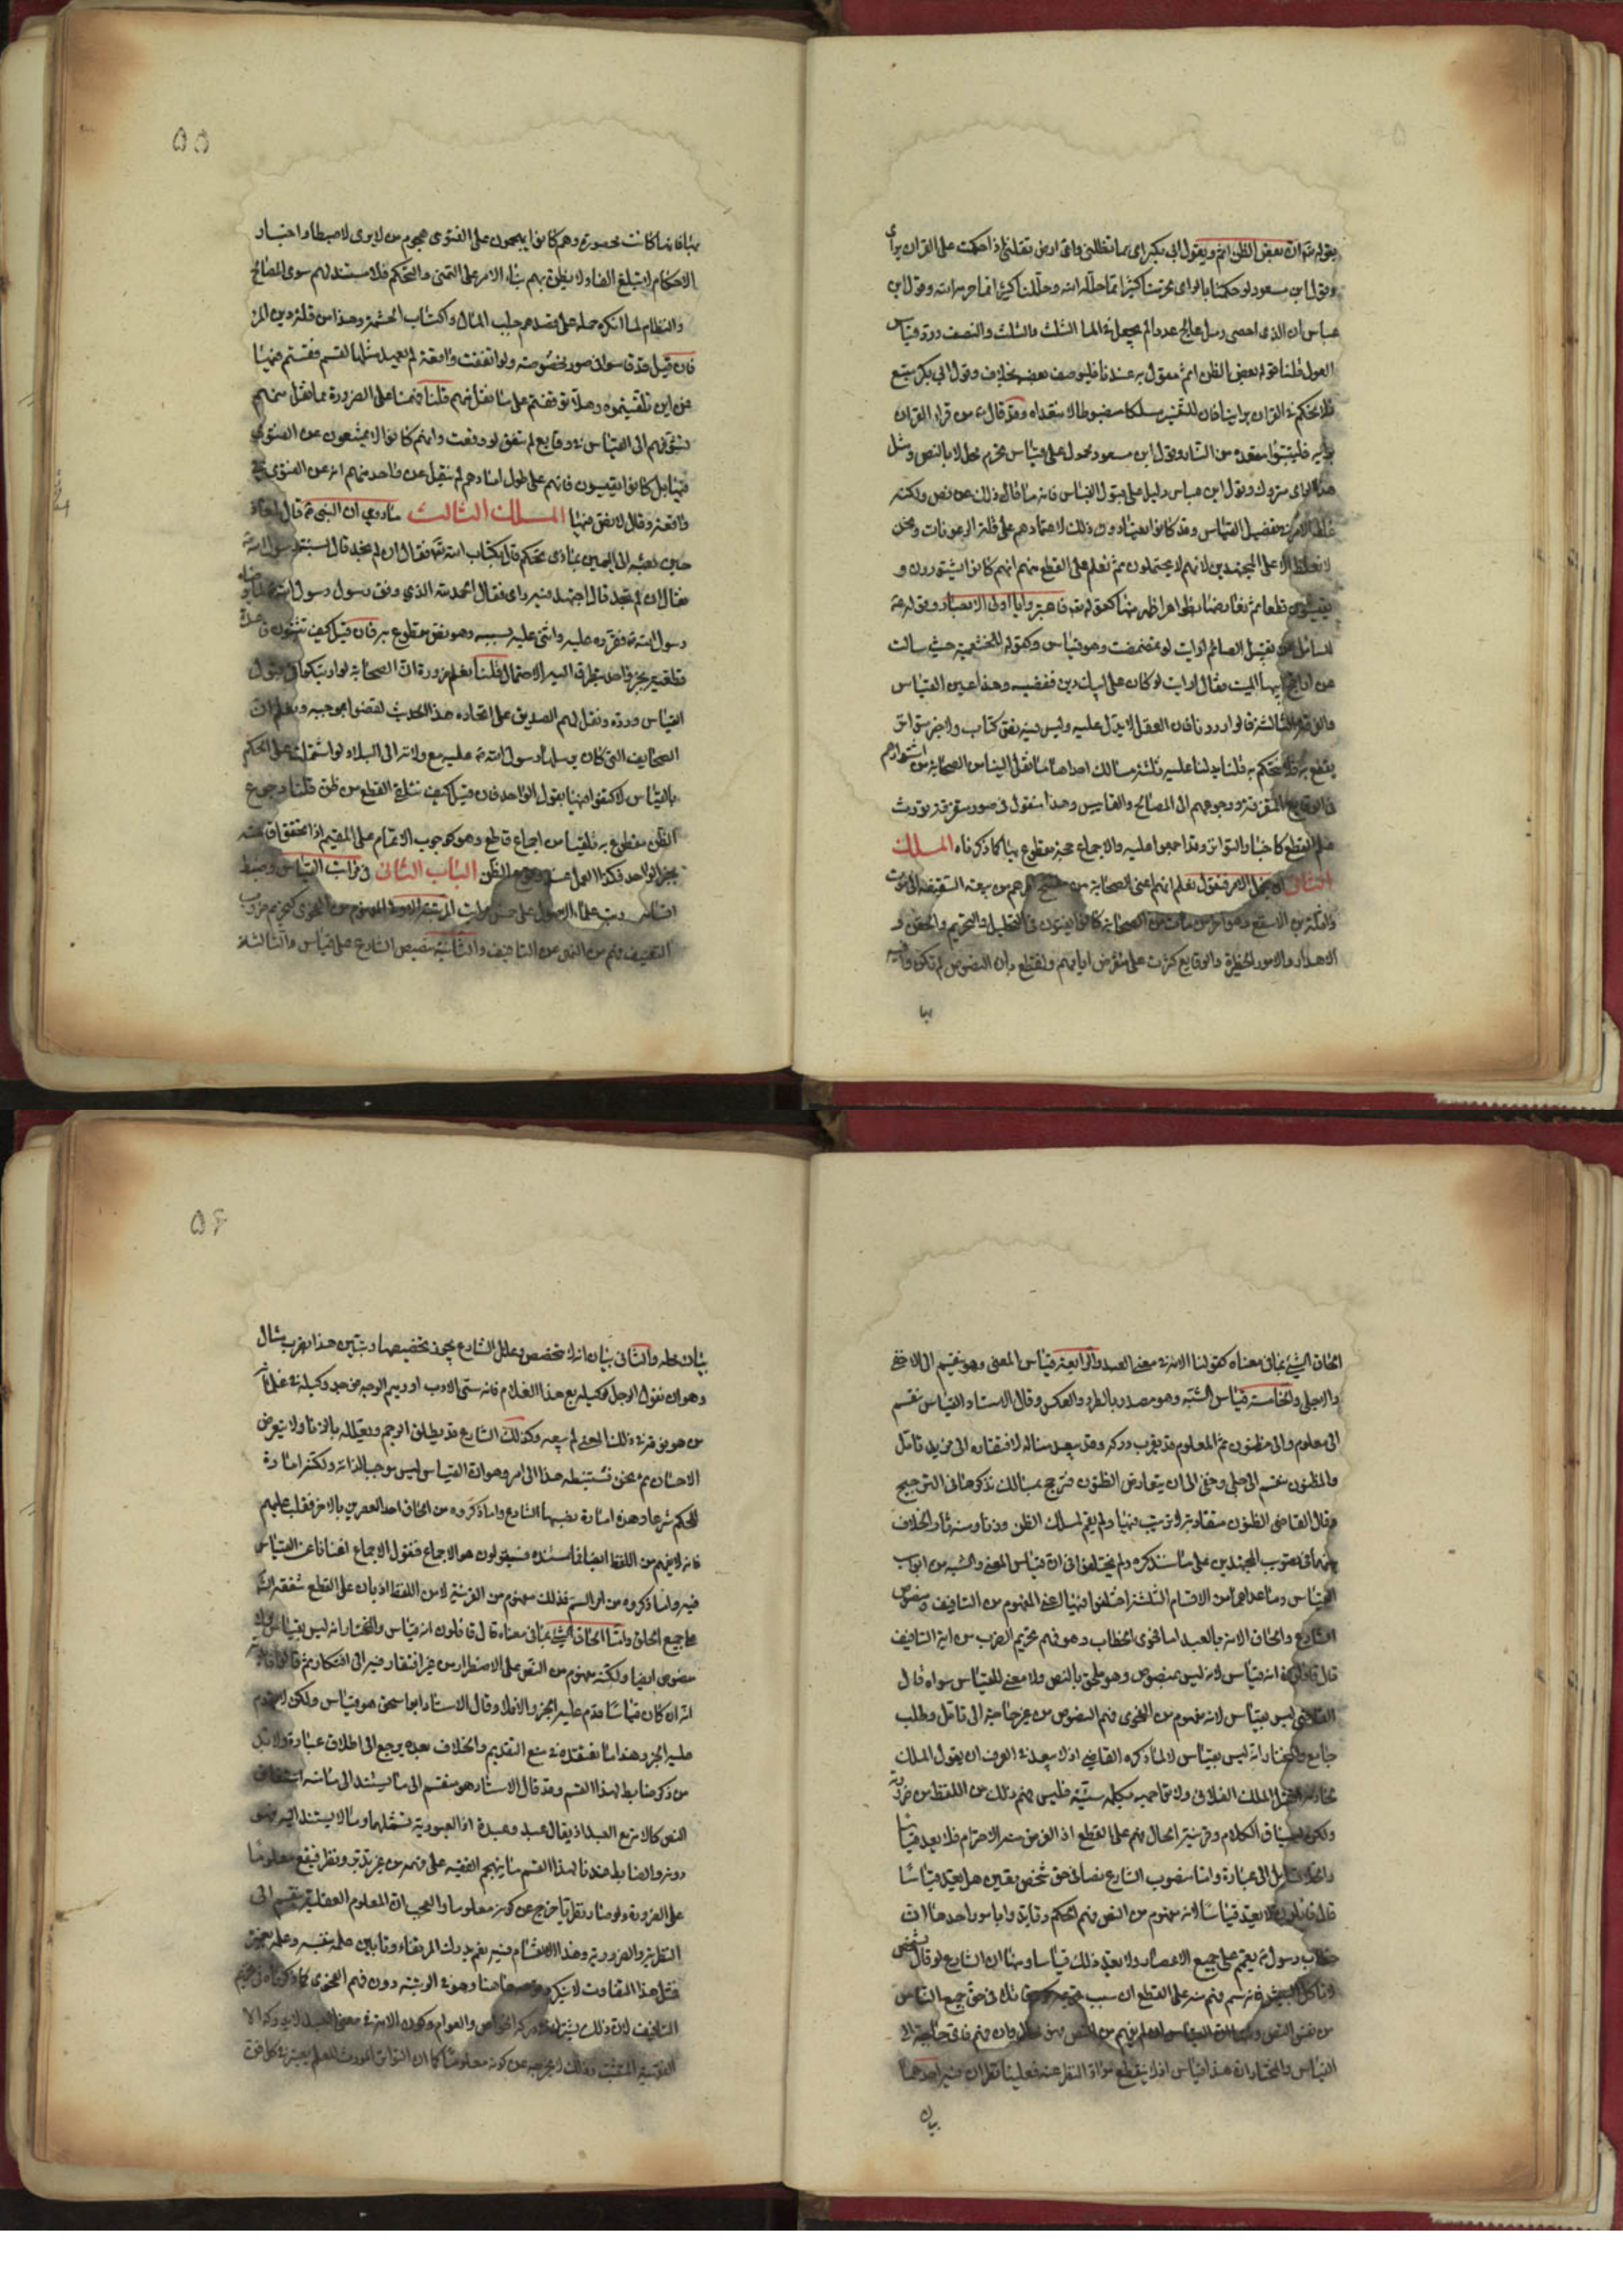 بقوله تعالى ان بعض الظن اثم وبقول ابي بكر اي سماء تظلني واي ارض تقلني اذا حكمت على القران براي
وقول ابن مسعود لو حكمنا بالراي لحرمنا كثيرا مما حلله الله وحللنا كثيرا مما حرمه الله وقول ابن
عباس ان الذي احصى رمل عالج عددا لم يجعل في المال الثلث والثلث والنصف ورد قياس
العول قلنا قوله بعض الظن اثم معمول به عندنا فليوصف بعضه بخلافه وقول ابي بكر متبع
فلا يحكم في القران براينا فان للتفسير مسلكا مضبوطا لا نتعداه وقد قال من قرا القران
برايه فليتبوا مقعده من النار وقول ابن مسعود محمول على قياس محرم محلل لا بالنص ومثل
هذا الراي متروك وقول ابن عباس دليل على قبول القياس فانه ما قال ذلك عن نص ولكنه
غلظ الامر في تفصيل القياس وقد كانوا يعتادون ذلك لاعتمادهم على قلة الرعونات ونحن
لا نغلظ الا على المجتهدين لانهم لا يحتملون ثم نعلم على القطع منهم انهم كانوا يشتورون و
يقيسون قطعا ثم نعارضها بظواهر اظهر منها كقوله تعالى فاعتبروا يا اولي الابصار وقوله
للسائل عن تقبيل الصائم ارايت لو تمضمضت وهو قياس وكقوله للخثعمية حيث سالت
عن ابيها الميت فقال ارايت لو كان على ابيك دين فقضيته وهذا عين القياس
والفرقة الثالثة قالوا رددنا فان العقل لا يدل عليه وليس فيه نص كتاب ولا خبر متواتر
يقطع به فلا نتحكم به قلنا يدلنا عليه ثلثة مسالك احدها ما نقل الينا من الصحابة من اشتوارهم
في الوقايع المتفرقة ورجوعهم الى المصالح والمقاييس وهذا منقول في صور متفرقة تورث
علم القطع كاخبار التواتر وقد اجمعوا عليه والاجماع حجة مقطوع بها كما ذكرناه المسلك
الثاني ان نجمل الامر فنقول نعلم انهم اعني الصحابة من مفتتح امرهم من بيعة السقيفة الى موت
واثلة بن الاسقع وهو اخر من مات من الصحابة كانوا يفتون في التحليل والتحريم والحقن و
الاهدار والامور الخطيرة والوقايع كثرت على منقرض ايامهم ونقطع بان النصوص لم تكن وافية
بها
٥٥
بها فانها كانت محصورة وهم كانوا يهجمون على الفتوى هجوم من لا يرى لا ضبطا واخبار
الاحكام لا تبلغ الفا ولا يظن بهم بناء الامر على التمني والتحكم فلا مستند لهم سوى المصالح
والنظام لما انكره حمله على قصدهم جلب المال واكتساب الحشمة وهذا من قلة دين المرء
فان قيل فقد قاسوا في صور مخصوصة ولو اتفقت واقعة لم يعهد مثلها لقسم فقستم فيها
فمن اين تلقيتموه وهلا توقفتم على ما نقل منهم قلنا فهمنا على الضرورة مما نقل منهم
تشوفهم الى القياس في وقايع لم تتفق لو وقعت وانهم كانوا لا يمتنعون عن الفتوى
فيها بل كانوا يقيسون فانهم على طول امادهم لم ينقل عن واحد منهم انه عن الفتوى في
واقعة وقال لا نص فيها المسلك الثالث ما روي ان النبي قال لمعاذ
حين بعثه الى اليمن بماذا تحكم قال بكتاب الله تعالى فقال ان لم تجد قال بسنة رسول الله
فقال ان لم تجد قال اجتهد فيه راي فقال الحمد لله الذي وفق رسول رسول الله
رسول الله فقرره عليه واثنى عليه بسببه وهو نص مقطوع به فان قيل كيف تثبتون قاعدة
قطعية بخبر واحد يتطرق اليه الاحتمال قلنا نعلم ضرورة ان الصحابة لو ارتبكوا في قبول
القياس ورده ونقل لهم الصديق على اتحاده هذا الحديث لقضوا بموجبه ونعلم ان
الصحايف التي كان يرسلها رسول الله عليه مع ولاته الى البلاد لو اشتملت على الحكم
بالقياس لاكتفوا فيها بقول الواحد فان قيل كيف نتلقى القطع من ظن قلنا وجوب
الظن مقطوع به تلقيناه من اجماع قاطع وهو كوجوب الاتمام على المقيم اذا تحقق اقامته
بخبر الواحد فكذا العمل عند وقوع الظن الباب الثاني في مراتب القياس وضبط
اقسامه رتب علماء الاصول على خمس مراتب المرتبة الاولى المفهوم من الفحوى كتحريم ضروب
التعنيف فهم من النهي عن التافيف والثانية تنصيص الشارع على قياس والثالثة
الحاق الشيء بما في معناه كقولنا الامة في معنى العبد والرابعة قياس المعنى وهو ينقسم الى الاخفى
والاجلي والخامسة قياس الشبه وهو مصدر بالطرد والعكس وقال الاستاد القياس ينقسم
الى معلوم والى مظنون ثم المعلوم قد يقرب دركه وقد يبعد مناله لافتقاره الى مزيد تامل
والمظنون ينقسم الى جلي وخفي الى ان يتعارض الظنون فترجح بمسالك نذكرها في الترجيح
وقال القاضي الظنون متفاوتة لا ترتيب فيها ولم يقم لمسلك الظن وزنا ومنشا والخلاف
بينهما في تصويب المجتهدين على ما سنذكره ولم يختلفوا في ان قياس المعنى والشبه من ابواب
القياس وما عداهما من الاقسام الثلثة اختلفوا فيها اعني المفهوم من التافيف ومنصوص
الشارع والحاق الامة بالعبد اما فحوى الخطاب وهو فهم تحريم الضرب من اية التافيف
قال قائلون انه قياس لانه ليس بمنصوص وهو ملحق بالنص ولا معنى للقياس سواه قال
القاضي ليس بقياس لانه مفهوم من الفحوى فهم النصوص من غير حاجة الى تامل وطلب
جامع والمختار انه ليس بقياس لا لما ذكره القاضي اذ لا يبعد في العرف ان يقول الملك
لخادمه اقتل الملك الفلاني ولا تواجهه بكلمة سيئة فليس فهم ذلك من اللفظ من ضرورته
ولكن لسياق الكلام وقرينة الحال فهم على القطع اذ الغرض منه الاحترام فلا يعد قياسا
والخلاف ايل الى عبارة واما منصوب الشارع نصا في حق شخص بعين هل يعد قياسا
قال قائلون لا يعد قياسا لانه مفهوم من النص فهم الحكم وتايد واباه من احدها ان
خطاب رسول الله يعم على جميع الاعصار ولا يعد ذلك قياسا ومنها ان الشارع لو قال لشخص
لا تاكل البيش فانه سم فهم منه على القطع ان سبب تحريمه كونه قاتلا في حق جميع الناس
من نفس النص ومن انكر القياس ان لم يفهم من النص فهو مخال وان فهم فاي حاجة الى
القياس والمختار ان هذا قياس اذ لا ينقطع مواد النظر عنه فعلينا نظران فيه احدهما
بيان
٥٦
بيان محله والثاني بيان انه لا تخصص وعلل الشارع يجوز تخصيصها وتبيين هذا بضرب مثال
وهو ان يقول الرجل لوكيله بع هذا الغلام فانه سيئ الادب او دميم الوجه فوجد وكيله في غلمانه
من هو فوقه في ذلك المعنى لم يبعه وكذلك الشارع قد يطلق الرجم ويعلله بالزنا ولا يتعرض
الاحصان ثم نحن نستنبطه هذا الى امر وهو ان القياس ليس موجبا لذاته ولكنه امارة
للحكم شرعا وهذه امارة نصبها الشارع واما ذكروه من الحاق احد العصرين بالاخر فقلب عليهم
فانه لا يفهم من اللفظ ايضا فاستنده فسيقولون هو الاجماع فنقول الاجماع اغنانا عن القياس
فيه واما ذكروه من امر السم فذلك مفهوم من القرينة لا من اللفظ اذ بان على القطع شفقة الشارع
على جميع الخلق واما الحاق الشيء بما في معناه قال قائلون انه قياس والمختار انه ليس بقياس ولا
منصوص ايضا ولكنه مفهوم من النص على الاضطرار من غير افتقار فيه الى افتكار ثم قالوا فائدته
انه ان كان قياسا قدم عليه الخبر والا فلا وقال الاستاد ابو اسحق هو قياس ولكن لا يقدم
عليه الخبر وهذا ما نعتقده في منع التقديم والخلاف بعده يرجع الى اطلاق عبارة ولا بد
من ذكر ضابط لهذا القسم وقد قال الاستاد هو منقسم الى ما يستند الى ما منه اشتقاق
النص كالامة مع العبد اذ يقال عبد وعبدة اذ العبودية تشملهما وما لا يستند اليه فهو
دونه والضابط عندنا لهذا القسم ما يتهجم الفقيه على فهمه من غير تدبر ونظر فيقع معلوما
على الضرورة ولو صار نظريا خرج عن كونه معلوما والعجب ان المعلوم العقلية تنقسم الى
النظرية والضرورية وهذا الاقسام فيه نعم يدرك المرء تفاوتا بين علمه بنفسه وعلمه بغيره
فمثل هذا التفاوت لا ينكر ههنا وهو في الرتبة دون فهم الفحوى كما ذكرناه في تحريم
التافيف لان ذلك يشترك في دركه الخواص والعوام وكون الامة في معنى العبد لا يدركه الا
الفقيه المثبت وذلك لا يخرجه عن كونه معلوما كما ان التواتر المورث للعلم يعتبر في كل فن